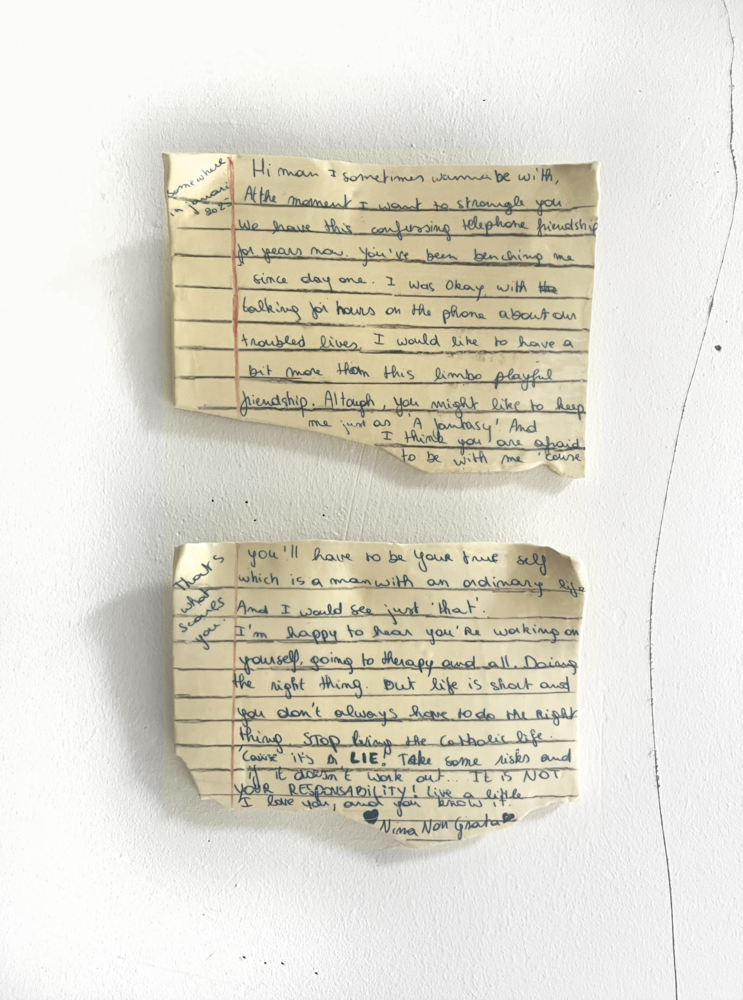 somewhere
in januari
Hi man I sometimes wanna be with,
At the moment I want to strangle you.
We have this confussing telephone friendship
for years now. You've been benching me
since day one. I was Okay with
talking for hours on the phone about our
troubled lives. I would like to have a
bit more than this limbo playful
friendship. Altough, you might like to keep
me just as 'A fantasy' And
I think you are afraid
to be with me 'cause
That's
what
scares
you.
you'll have to be your true self
which is a man with an ordinary life
And I would see just 'that'.
I'm happy to hear you're working on
yourself, going to therapy and all. Doing
the right thing. But life is short and
you don't always have to do the right
thing. STOP living the Catholic life.
'cause it's A LIE! Take some risks and
if it doesn't work out... IT IS NOT
YOUR RESPONSABILITY! Live a little
I love you, and you know it.
Nina Non Grata